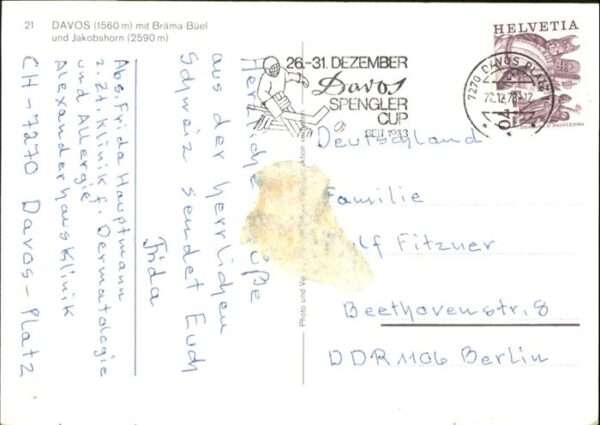 21 DAVOS (1560 m) mit Bräma-Büel
und Jakobshorn (2590 m)
HELVETIA
26.-31. DEZEMBER
Davos
SPENGLER
CUP
SEIT 1923
7270 DAVOS PLATZ
Herzliche Grüße
aus der herrlichen
Schweiz sendet Euch
Frida
Abs. Frida Hauptmann
z. Zt. Klinik f. Dermatologie
und Allergie
Alexanderhausklinik
CH-7270 Davos-Platz
Photo und
Deutschland
Familie
Fitzner
Beethovenstr. 8
DDR 1106 Berlin